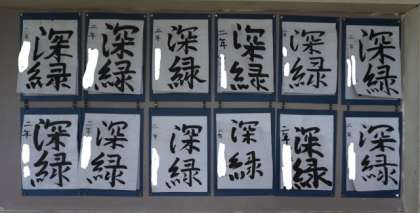 二年 深緑
二年 深緑
二年 深緑
二年 深緑
二年 深緑
二年 深緑
二年 深緑
二年 深緑
深緑
二年 深緑
二年 深緑
二年 深緑